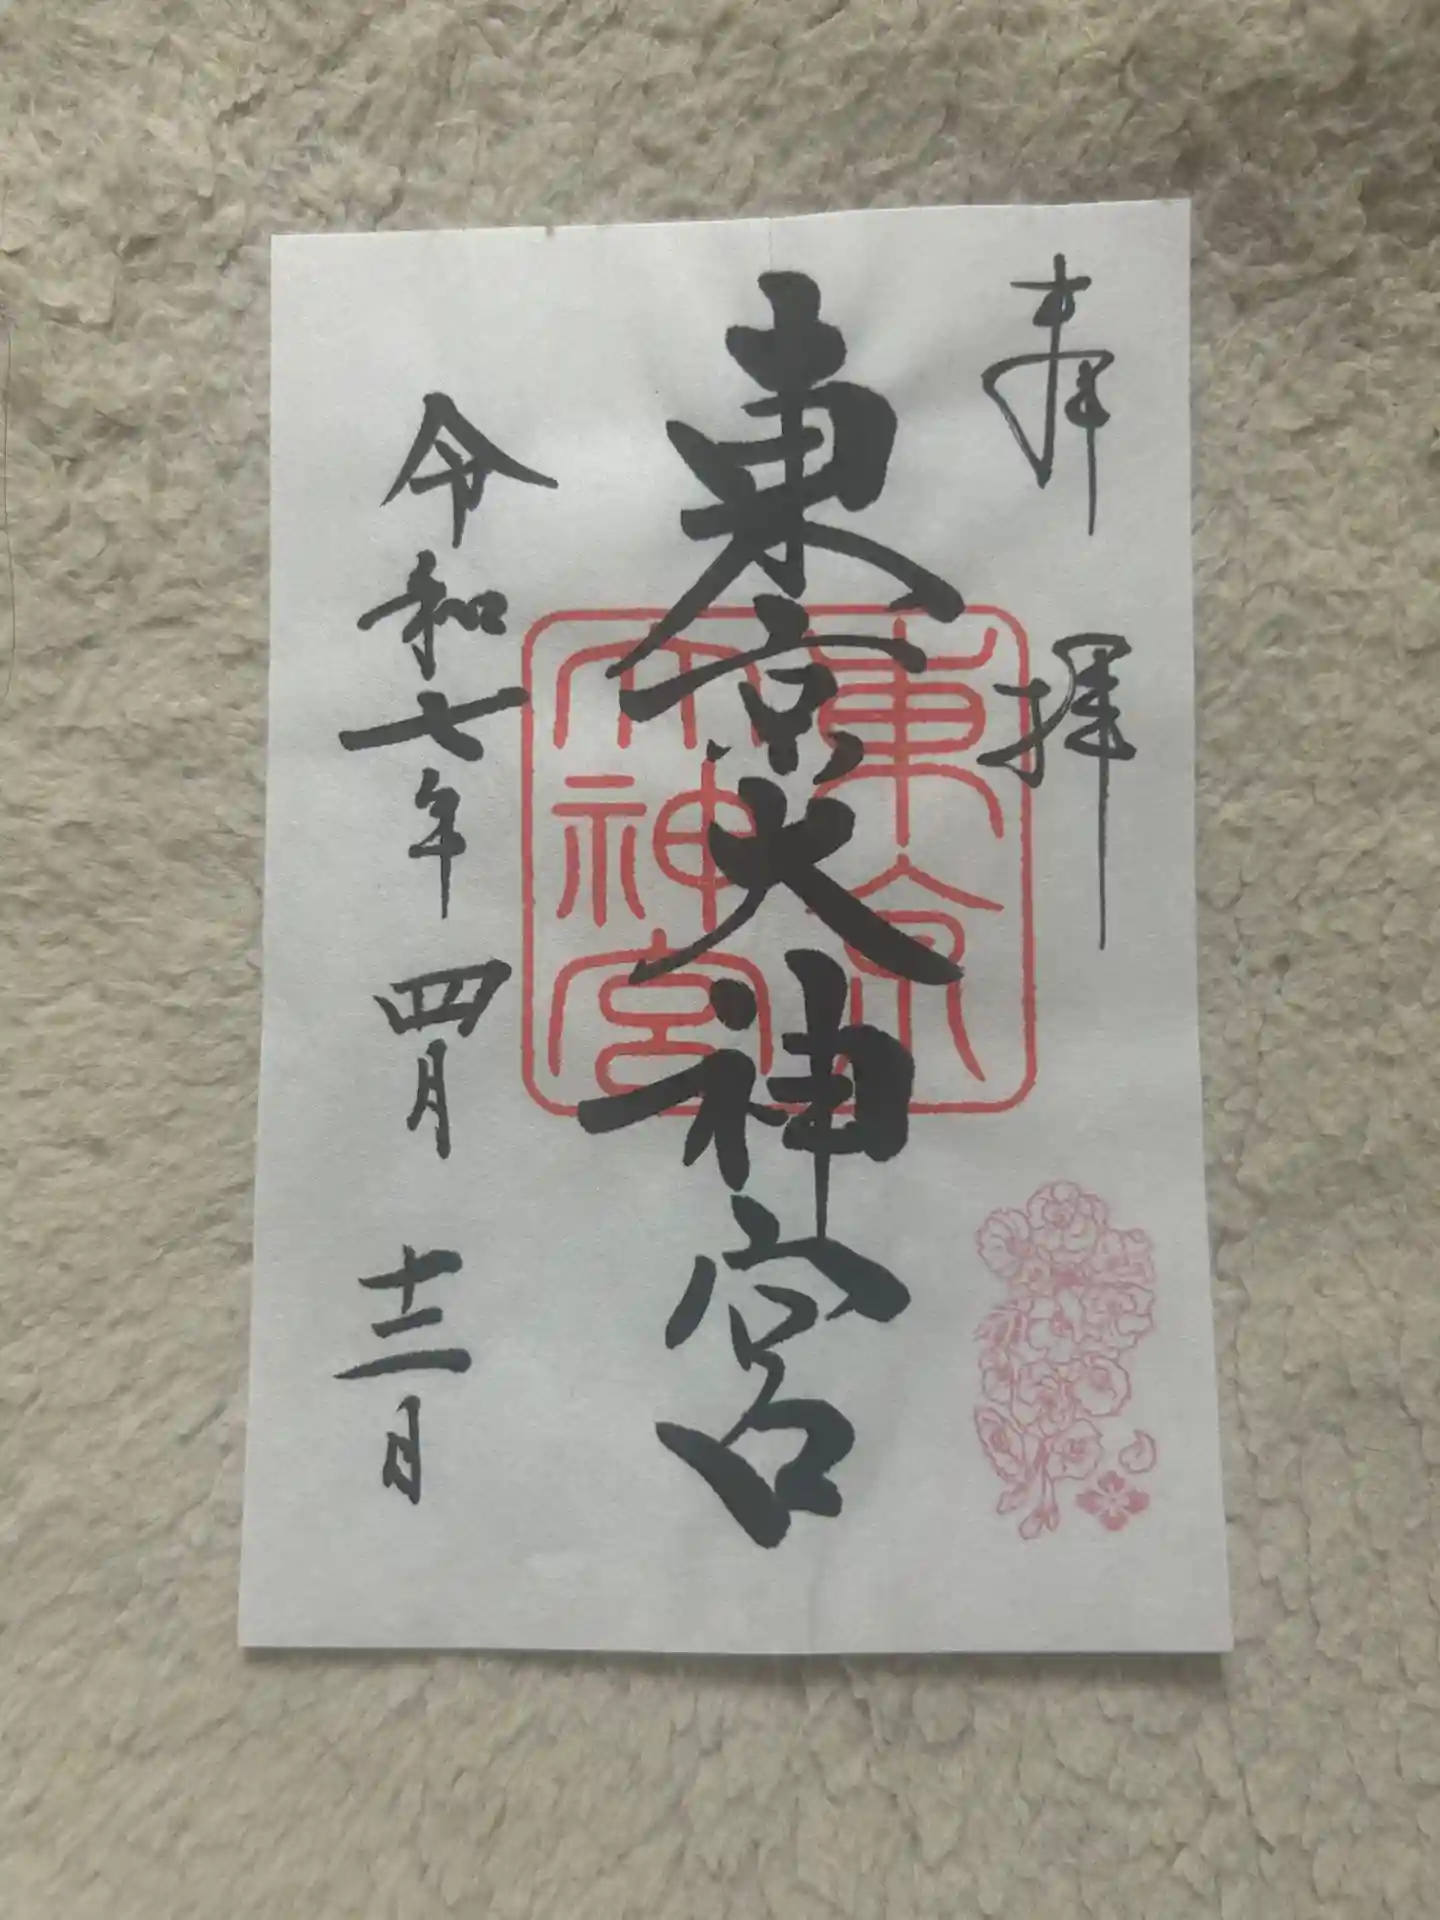 奉拝
東京大神宮
令和七年四月十二日
東京
大神宮